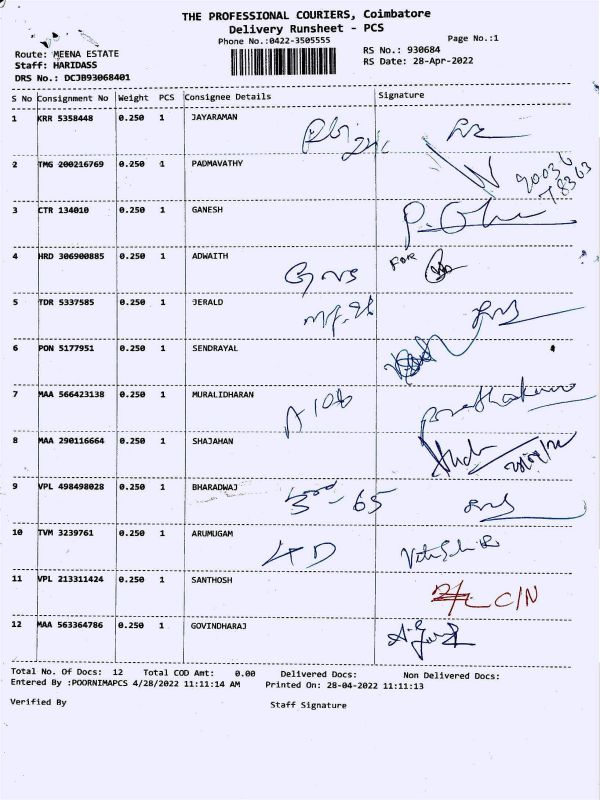 THE PROFESSIONAL COURIERS, Coimbatore
Delivery Runsheet - PCS
Phone No.:0422-3505555 Page No.:1
Route: MEENA ESTATE RS No.: 930684
Staff: HARIDASS RS Date: 28-Apr-2022
DRS No.: DCJB93068401
S No Consignment No Weight PCS Consignee Details Signature
1 KRR 5358448 0.250 1 JAYARAMAN
2 TMG 200216769 0.250 1 PADMAVATHY
3 CTR 134010 0.250 1 GANESH
4 HRD 306900885 0.250 1 ADWAITH FOR
5 TDR 5337585 0.250 1 JERALD
6 PON 5177951 0.250 1 SENDRAYAL
7 MAA 566423138 0.250 1 MURALIDHARAN
8 MAA 290116664 0.250 1 SHAJAHAN
9 VPL 498498028 0.250 1 BHARADWAJ
10 TVM 3239761 0.250 1 ARUMUGAM 4D
11 VPL 213311424 0.250 1 SANTHOSH C/N
12 MAA 563364786 0.250 1 GOVINDHARAJ
Total No. Of Docs: 12 Total COD Amt: 0.00 Delivered Docs: Non Delivered Docs:
Entered By :POORNIMAPCS 4/28/2022 11:11:14 AM Printed On: 28-04-2022 11:11:13
Verified By Staff Signature